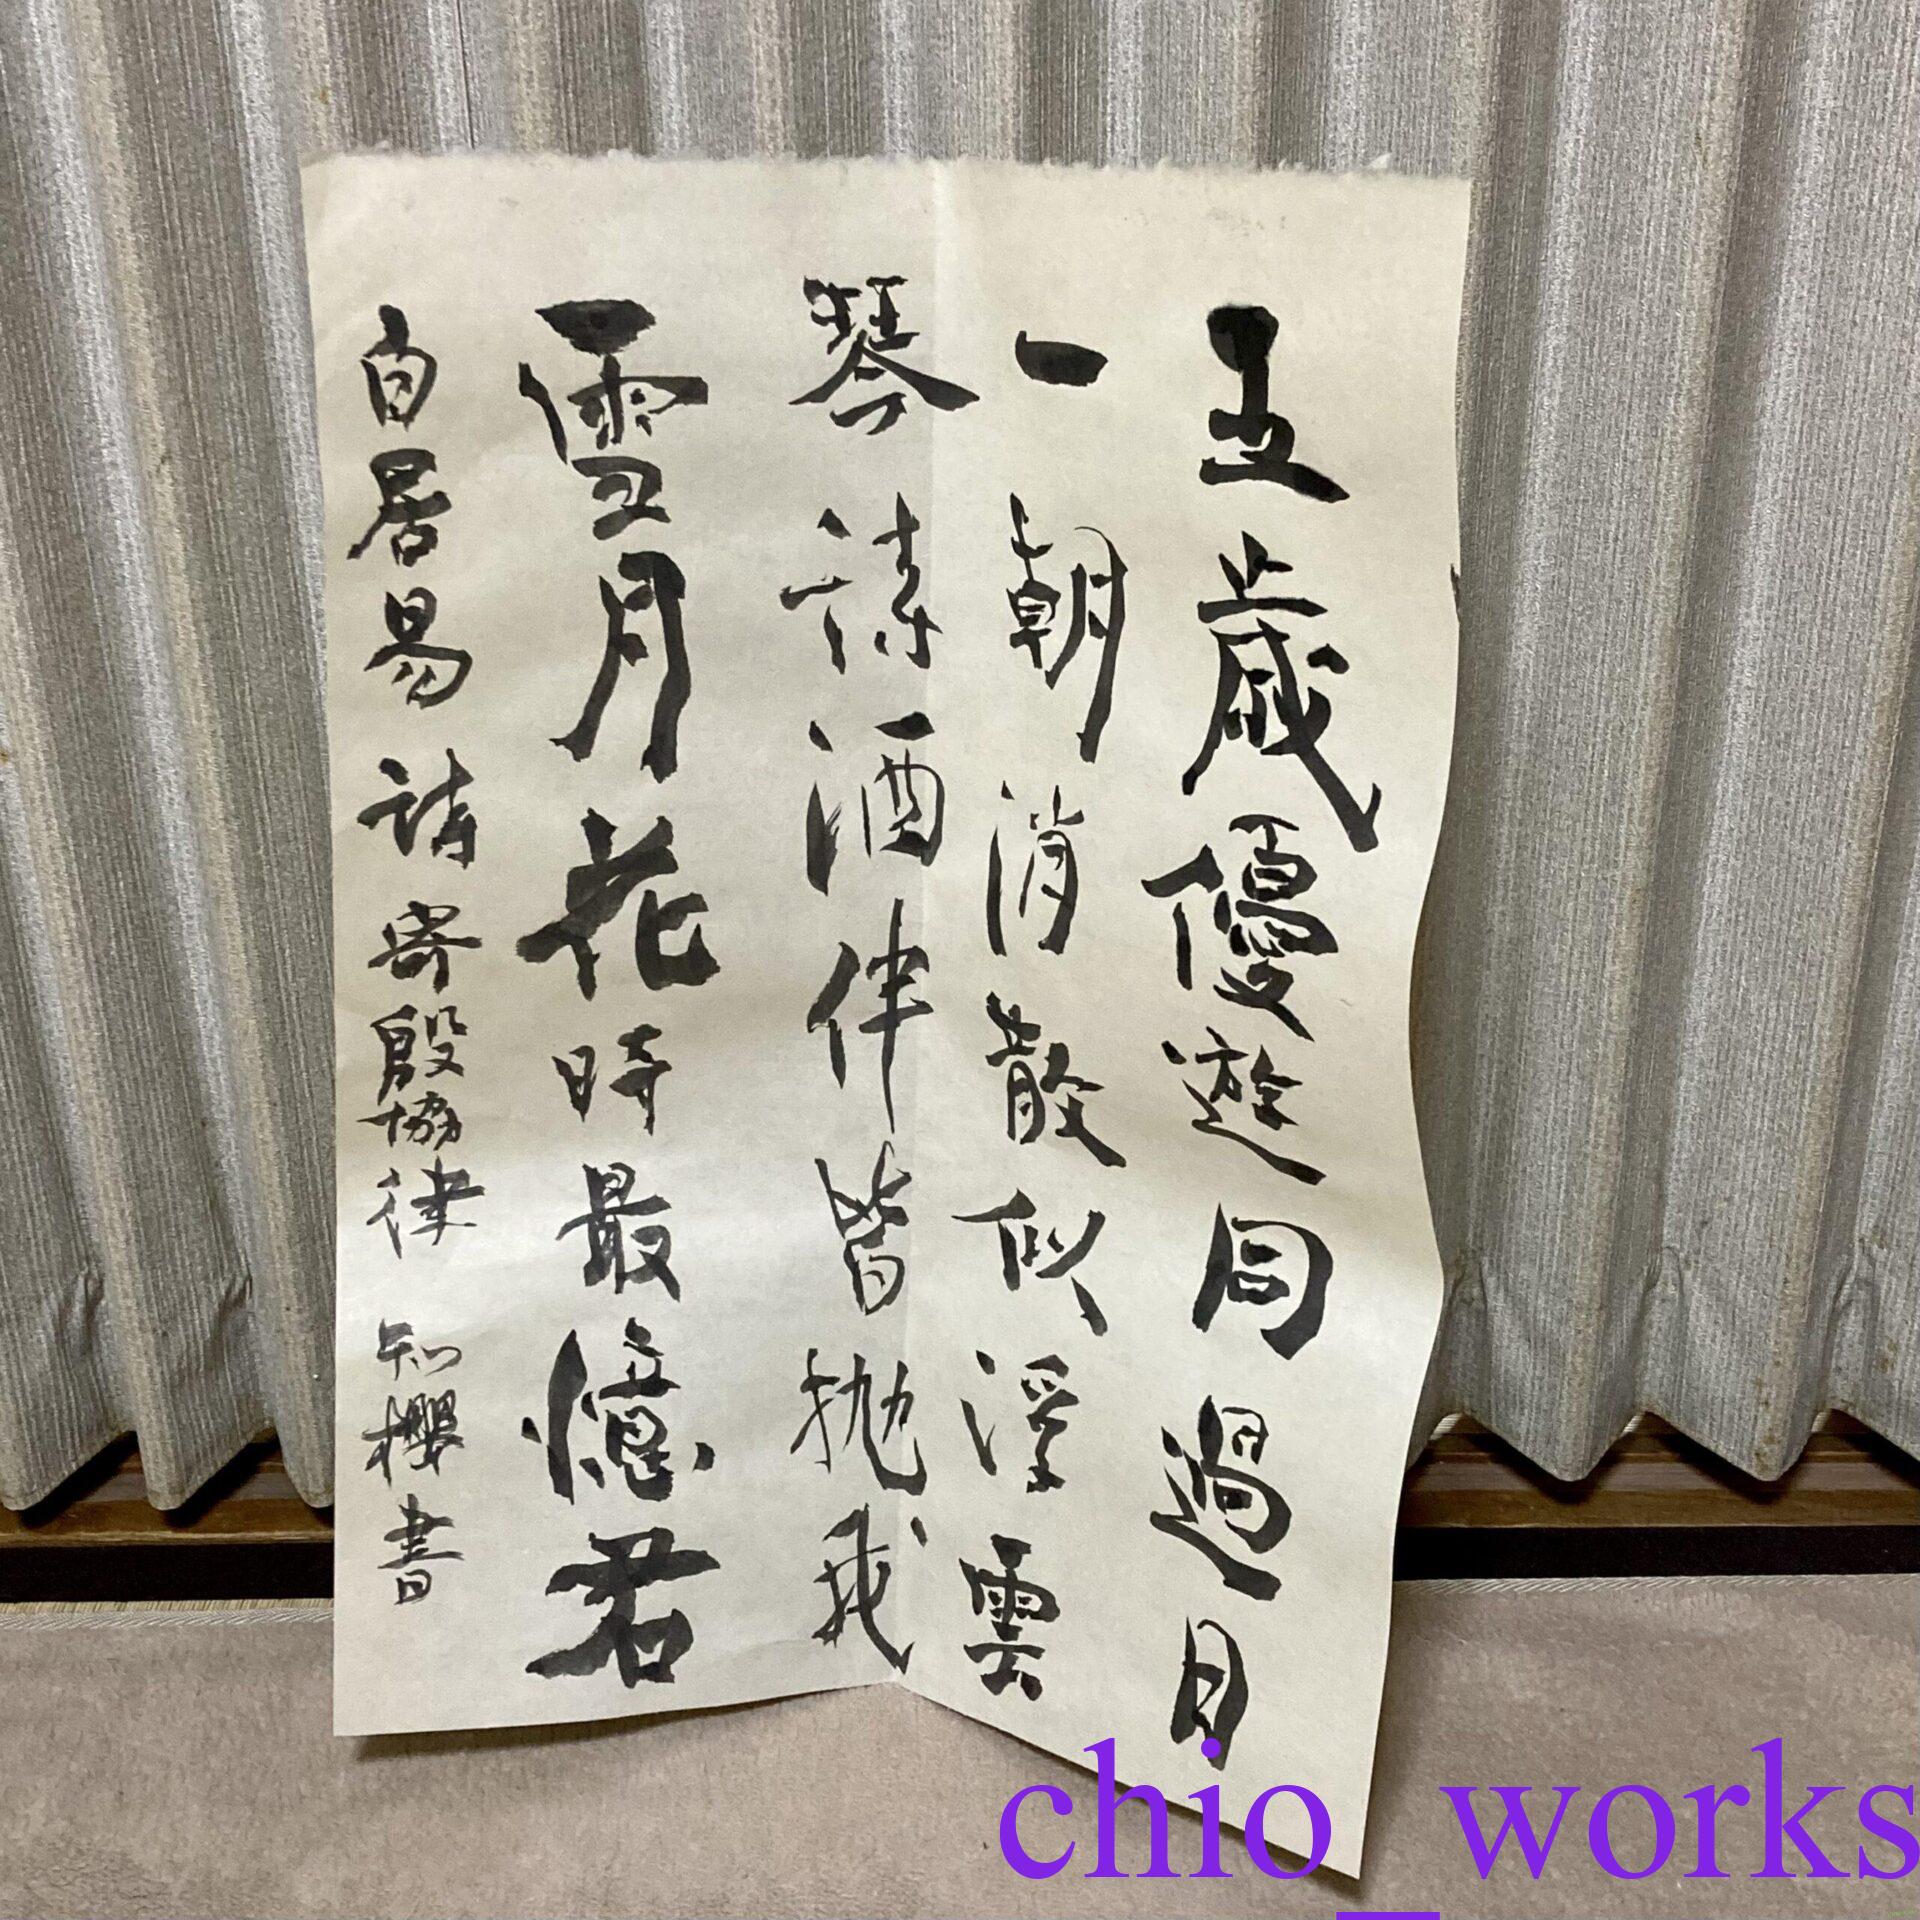 五歳優遊同過日
一朝消散似浮雲
琴詩酒伴皆抛我
雪月花時最憶君
白居易詩寄殷協律 知櫻書
chio_works